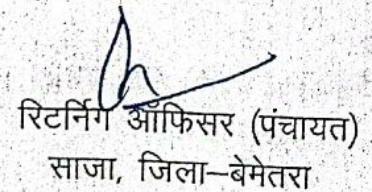 रिटर्निग ऑफिसर (पंचायत)
साजा, जिला–बेमेतरा